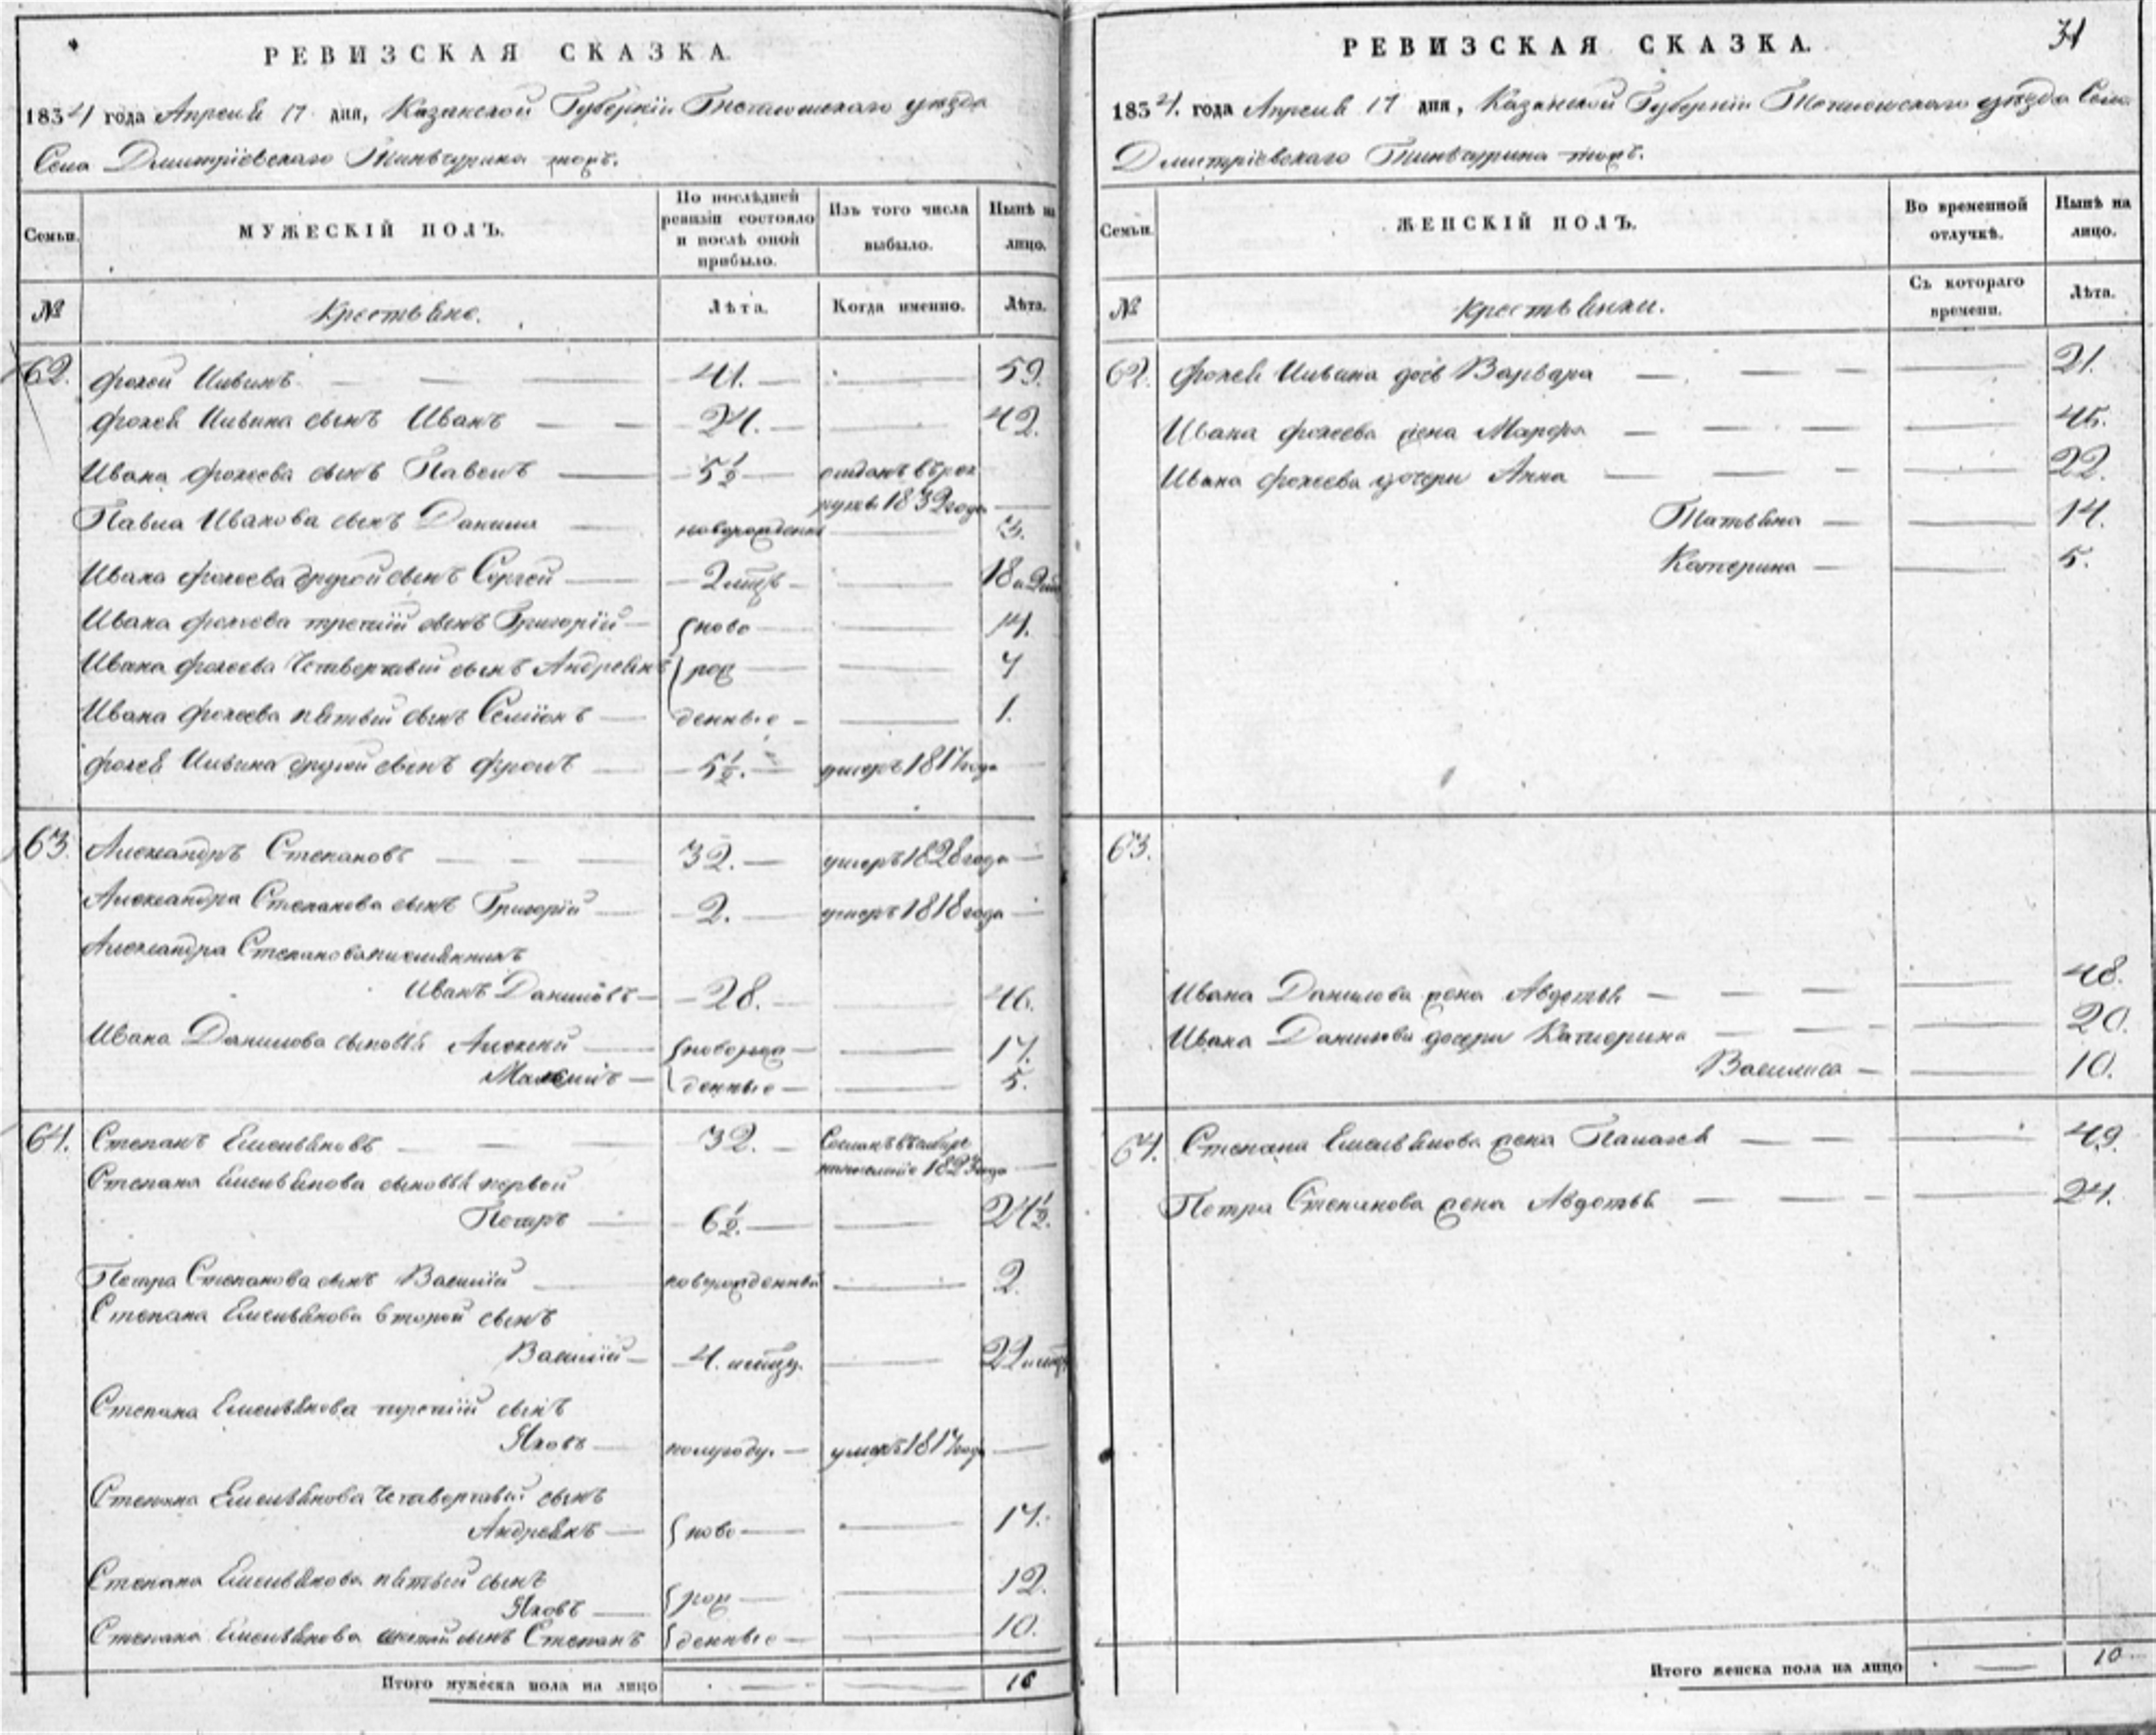 РЕВИЗСКАЯ СКАЗКА.
1834 года Апреля 17 дня, Казанской Губернiи уѣзда
Села Дмитрiевскаго Тинчурина тожъ.
Семьи.
МУЖЕСКIЙ ПОЛЪ.
По послѣдней ревизiи состояло и послѣ оной прибыло.
Изъ того числа выбыло.
Нынѣ на лицо.
№
Крестьяне.
Лѣта.
Когда именно.
Лѣта.
62. Фокей Ильинъ 41. 59.
Фокея Ильина сынъ Иванъ 24. 42.
Ивана Фокеева сынъ Павелъ 5½ отданъ в рек
руты 1832 года
Павла Иванова сынъ Данила новорожденный 3.
Ивана Фокеева другой сынъ Сергей 18
Ивана Фокеева третiй сынъ Григорiй ново 14.
Ивана Фокеева Четвертый сынъ Андреянъ рож 7
Ивана Фокеева пятый сынъ Семiонъ денные 1.
Фокея Ильина другой сынъ Фролъ 5½. умеръ 1817 года
63. Александръ Степановъ 32. умеръ 1828 года
Александра Степанова сынъ Григорiй 2. умеръ 1818 года
Александра Степанова племянникъ
Иванъ Даниловъ 28. 46.
Ивана Данилова сыновья Алексей новорож 17.
Максимъ денные 5.
64. Степанъ Емельяновъ 32. Сосланъ в Сибирь
на поселенiе 1823 года
Степана Емельянова сыновья первой
Петръ 6½. 24½.
Петра Степанова сынъ Василiй новорожденный 2
Степана Емельянова второй сынъ
Василiй 4. 22
Степана Емельянова третiй сынъ
Яковъ полугоду. умеръ 1817 года
Степана Емельянова Четвертый сынъ
Андреянъ ново 17.
Степана Емельянова пятый сынъ
Яковъ рож 12.
Степана Емельянова шестой сынъ Степанъ денные 10.
Итого мужеска пола на лицо 16
31
РЕВИЗСКАЯ СКАЗКА.
1834. года Апреля 17 дня, Казанской Губернiи уѣзда Села
Дмитрiевскаго Тинчурина тожъ.
Семьи.
ЖЕНСКIЙ ПОЛЪ.
Во временной отлучкѣ.
Нынѣ на лицо.
№
Крестьянки.
Съ котораго времени.
Лѣта.
62. Фокея Ильина дочь Варвара 21.
Ивана Фокеева жена Марфа 45.
Ивана Фокеева дочери Анна 22.
Татьяна 14.
Катерина 5.
63.
Ивана Данилова жена Авдотья 48.
Ивана Данилова дочери Катерина 20.
Василиса 10.
64. Степана Емельянова жена Палагея 49.
Петра Степанова жена Авдотья 24.
Итого женска пола на лицо 10